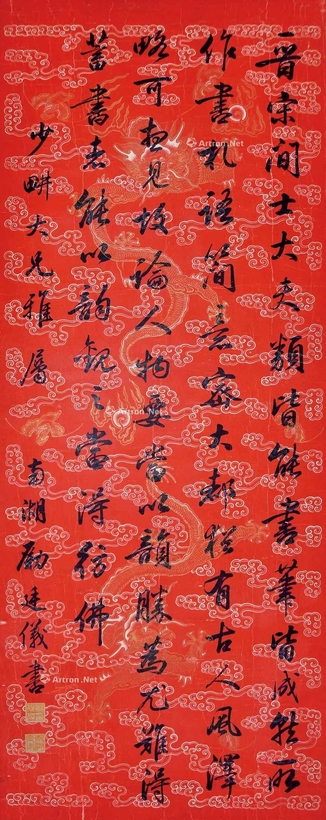 晉宋間士大夫類皆能書筆皆成就所
作書札語簡意密大都猶有古人風澤
略可想見故論人物要當以韻勝為尤難得
蓄書者能以韻觀之當得彷佛
少畊大兄雅屬 南湖勵廷儀書
Artron.Net
Artron.Net
Artron.Net
Artron.Net
Artron.Net
Artron.Net